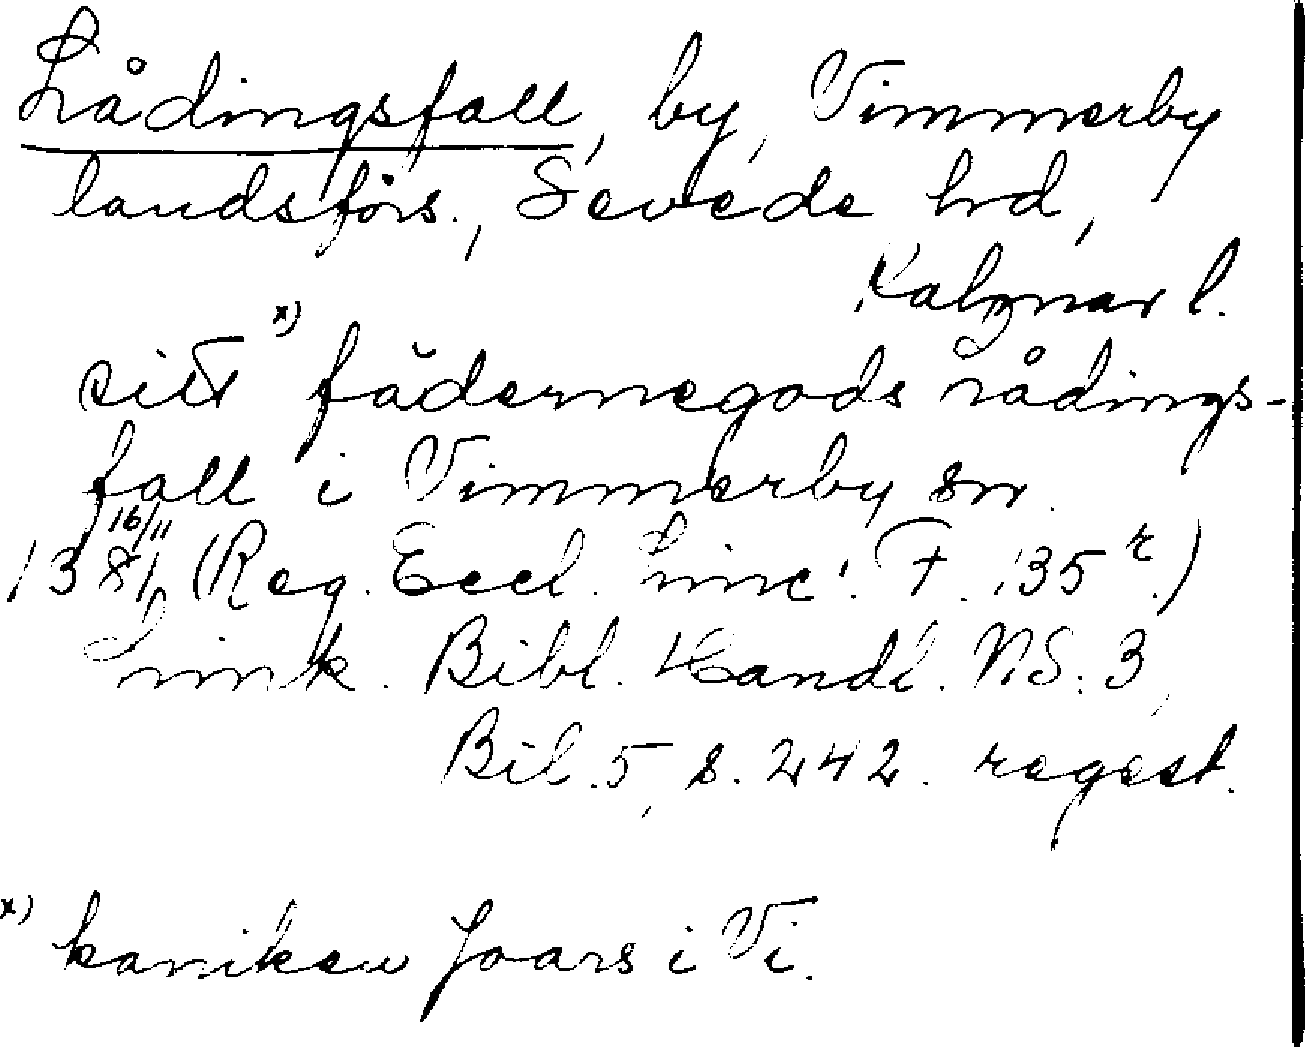 Lådingsfall, by, Vimmerby
landsförs., Sevede hd,
Kalmar l.
sitt x) fädernegods rådings-
fall i Vimmerby sn.
16/11
1381 (Reg. Eccl. Linc. F. 135 r.)
Link. Bibl. Handl. NS. 3,
Bil. 5, s. 242. regest.
x) kaniken Joars i Vi.